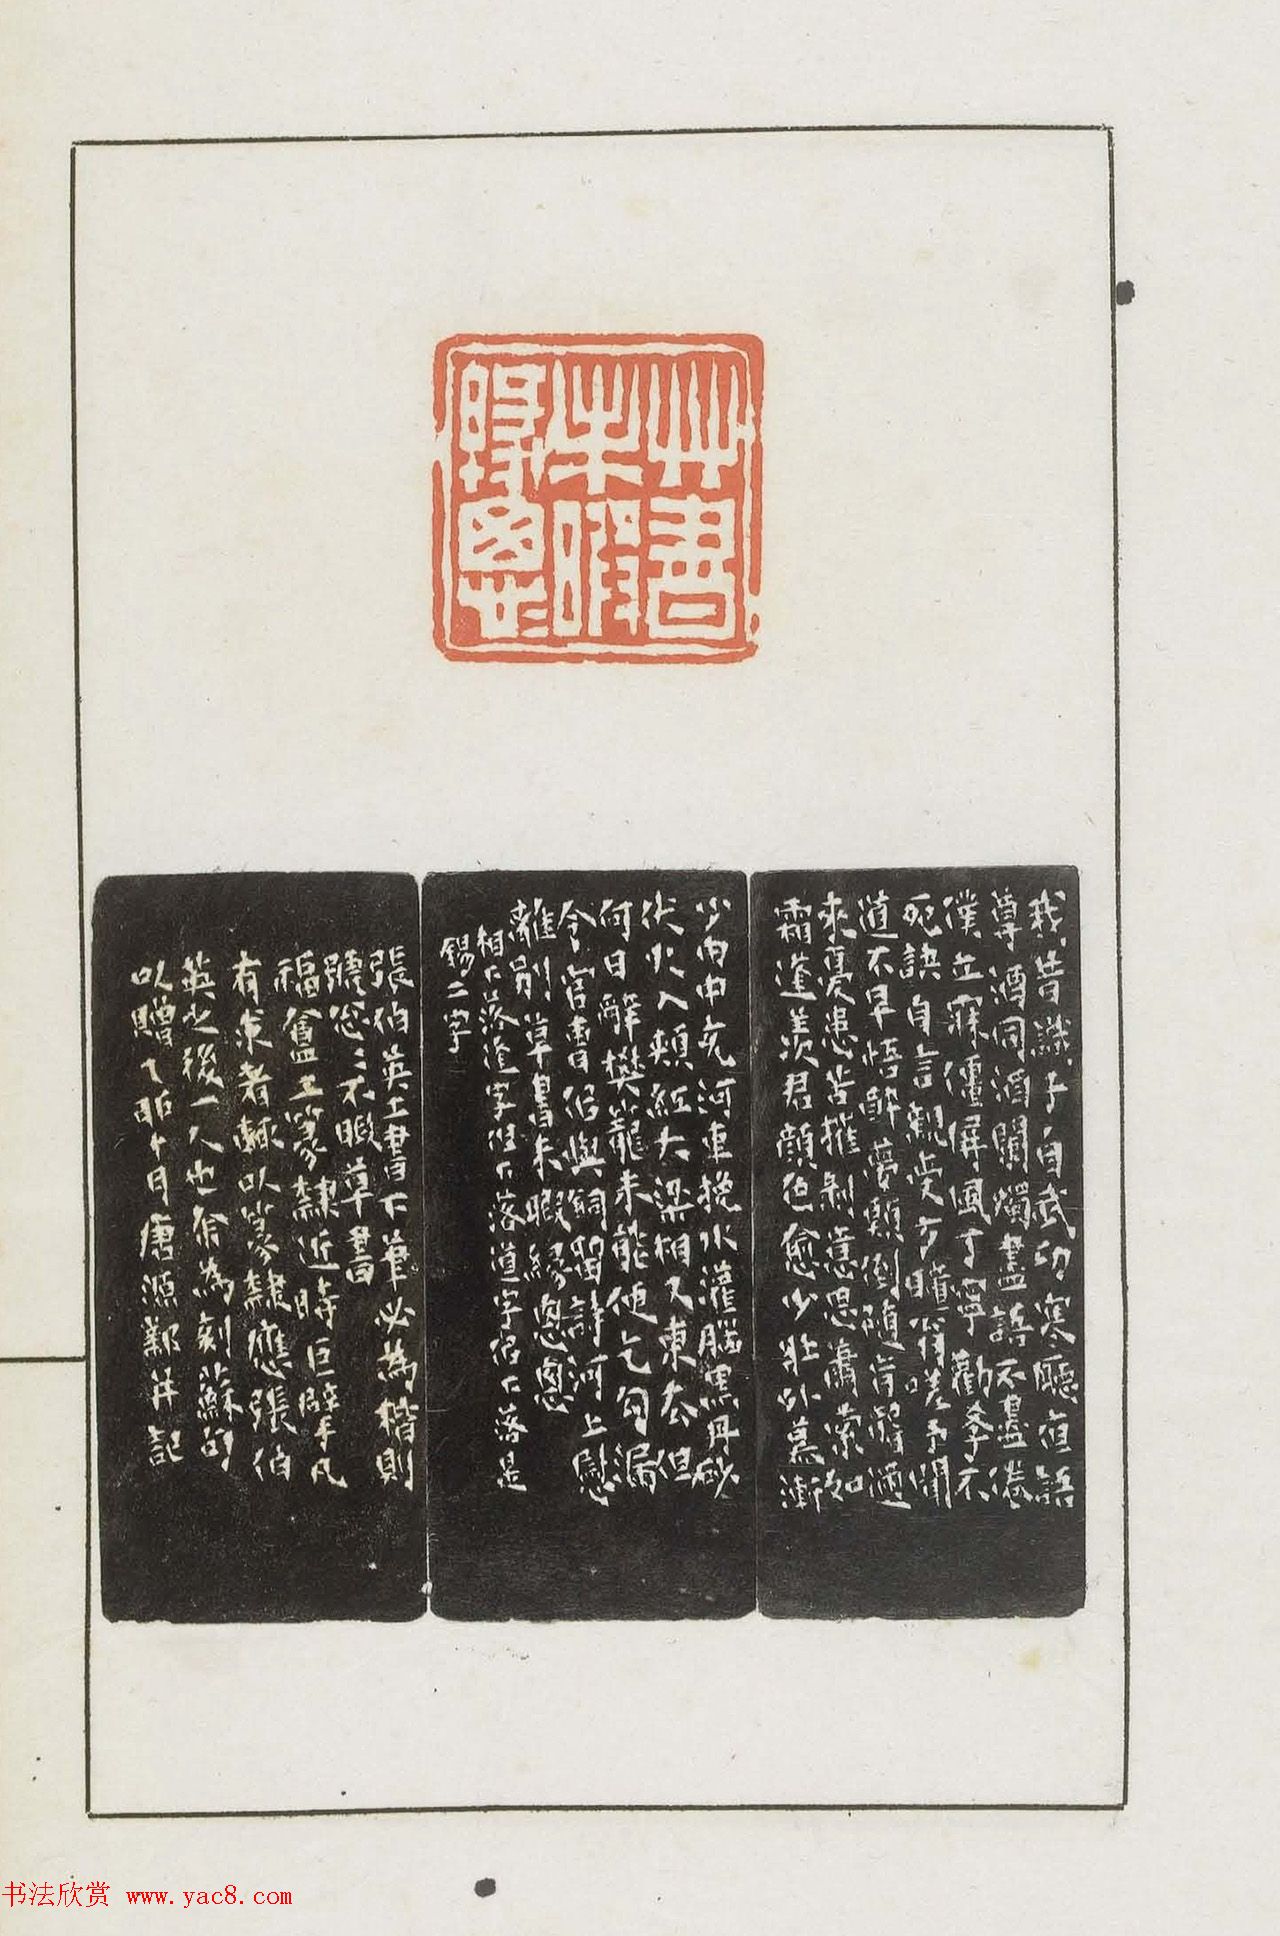 艸書
未暇
緣怱怱
我昔識子自武功寒廳夜語
尊酒同酒闌燭盡語不盡倦
僕立寐僵屏風丁寧勸學不
死訣自言親受方瞳翁嗟予聞
道不早悟醉夢顛倒隨盲聾邇
來憂患苦摧剝意思蕭索如
霜蓬羨君顏色愈少壯外慕漸
少由中充河車挽水灌腦黑丹砂
伏火入頰紅大梁相又東去但
何日辭樊籠未能便乞勾漏
令官曹似與同留詩河上慰
離別草書未暇緣怱怱
相下落逢字但下落道字官下落是
錫二字
張伯英工書下筆必為楷則
號怱怱不暇草書
福盦工篆隸近時巨擘凡
有求者輒以篆隸應張伯
英之後一人也余為刻蘇句
以贈乙卯十月唐源鄴并記
书法欣赏 www.yac8.com